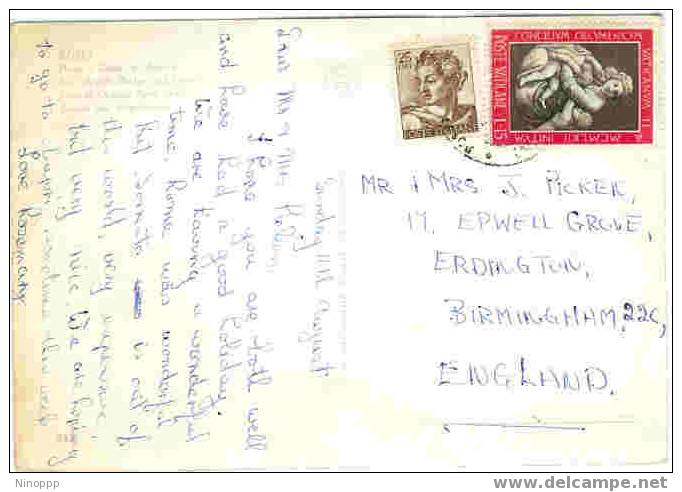 Sunday 11th August
Dear Mr & Mrs
I hope you are both well
and have had a good holiday.
We are having a wonderful
time. Rome was wonderful
but Sorrento is out of
the world, very expensive,
but very nice. We are hoping
to go to Capri sometime this week
Love Rosemary
MR & MRS J. PICKER,
17, EPWELL GROVE,
ERDINGTON,
BIRMINGHAM, 22C,
ENGLAND.
POSTE VATICANE L. 15
VATICANVM II
MCMLXII INITVM
ROMA
Ninoppp
www.delcampe.net